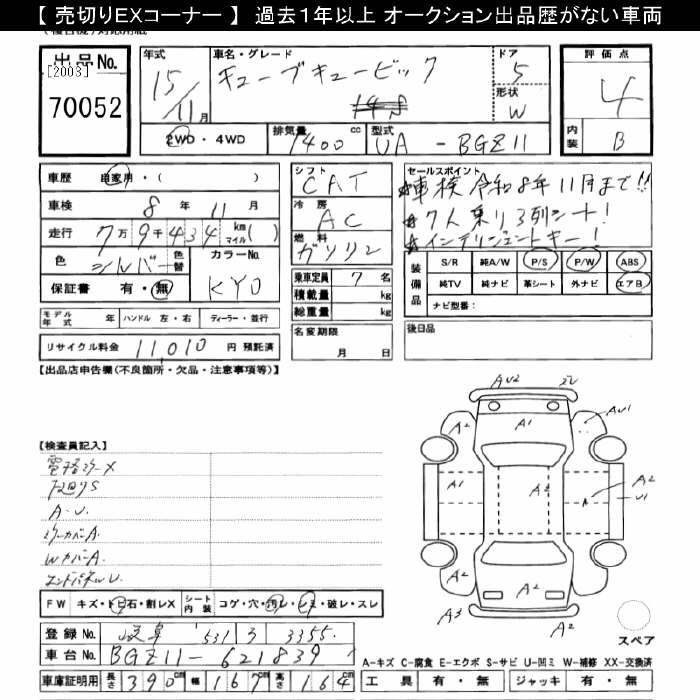 【 売切りEXコーナー 】 過去１年以上 オークション出品歴がない車両
出品No.
[2003]
70052
年式
15/11月
車名・グレード
キューブキュービック
ドア
5
形状
W
評価点
4
内装
B
2WD・4WD
排気量
1400 cc
型式
UA - BGZ11
車歴 自家用・( )
車検 8年 11月
走行 7万9千434 km マイル( )
色 シルバー 色替
カラーNo.
KY0
保証書 有・無
シフト
CAT
冷房
AC
燃料
ガソリン
乗車定員 7名
積載量 kg
総重量 kg
名変期限
月 日
セールスポイント
★車検 令和8年11月まで!!
★7人乗り3列シート!
★インテリジェントキー!
装備品
S/R 純A/W P/S P/W ABS
純TV 純ナビ 革シート 外ナビ エアB
ナビ型番:
後日品
モデル年式 年 ハンドル 左・右 ディーラー・並行
リサイクル料金 11010 円 預託済
【出品店申告欄(不良箇所・欠品・注意事項等)】
【検査員記入】
下廻りS
A-U.
WカバーA.
エンドパネルU
FW キズ・トビ石・割レX シート内装 コゲ・穴・汚レ・シミ・破レ・スレ
登録No. 岐阜 531 ヲ 3355
車台No. BGZ11-621839
車庫証明用 長さ 390cm 幅 167cm 高さ 164cm
AU2
A1
A2
AU1
A2
A2
A2
A
A2
U1
A2
A2
A1
A3
A2
スペア
A-キズ C-腐食 E-エクボ S-サビ U-凹ミ W-補修 XX-交換済
工具 有・無 ジャッキ 有・無